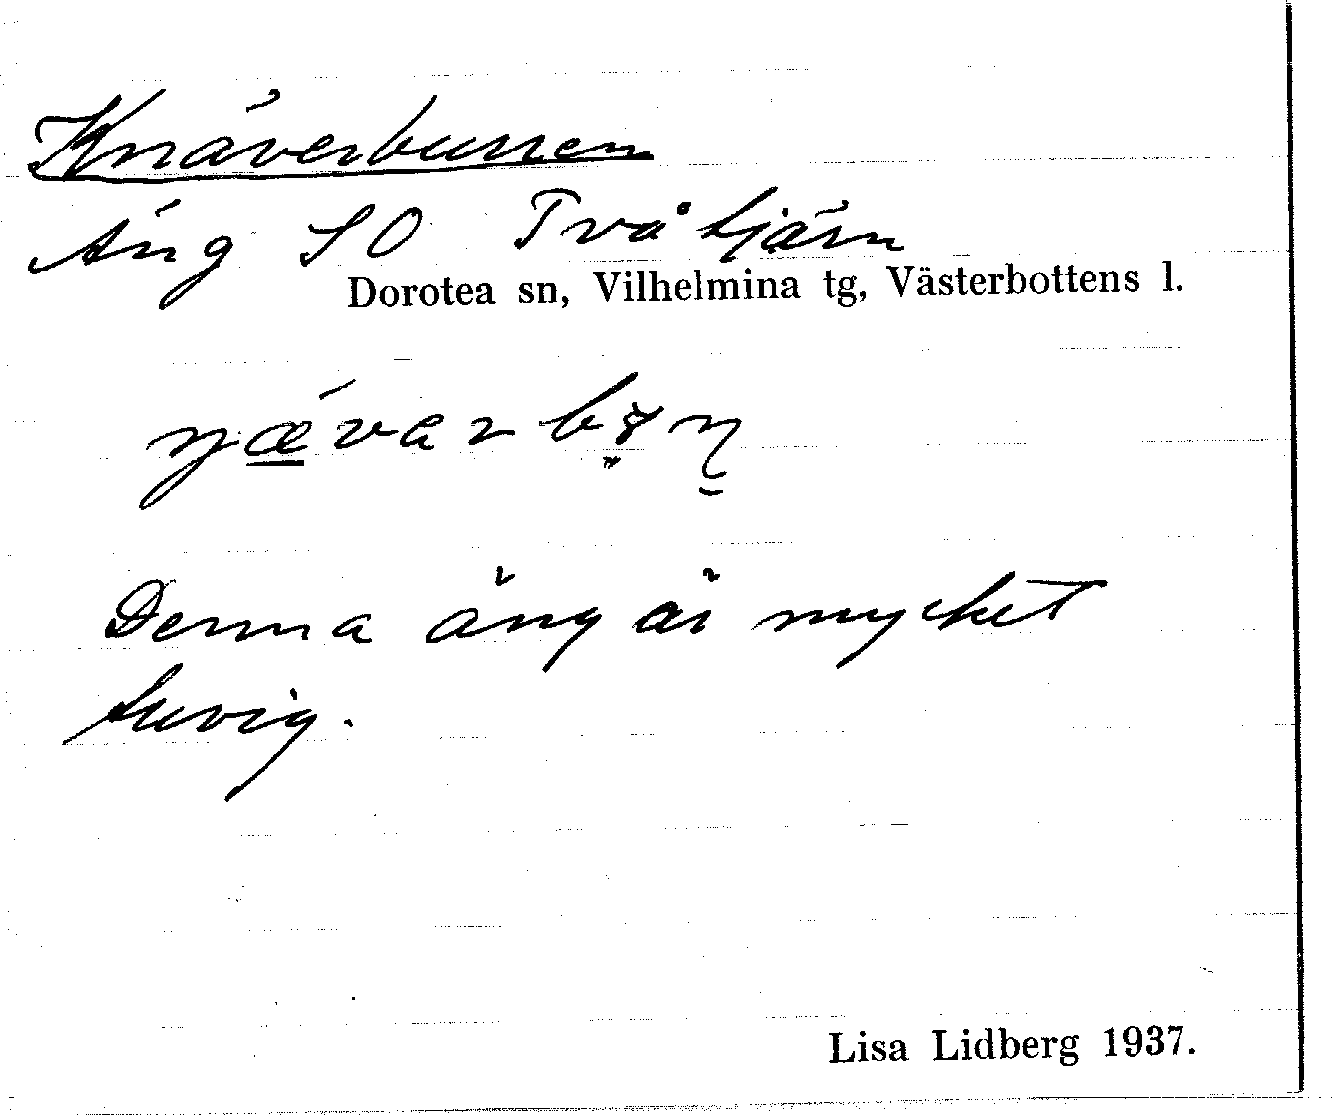 Knäverbunnen
Äng SO Tvåtjärn
Dorotea sn, Vilhelmina tg, Västerbottens l.
Denna äng är mycket
tuvig.
Lisa Lidberg 1937.